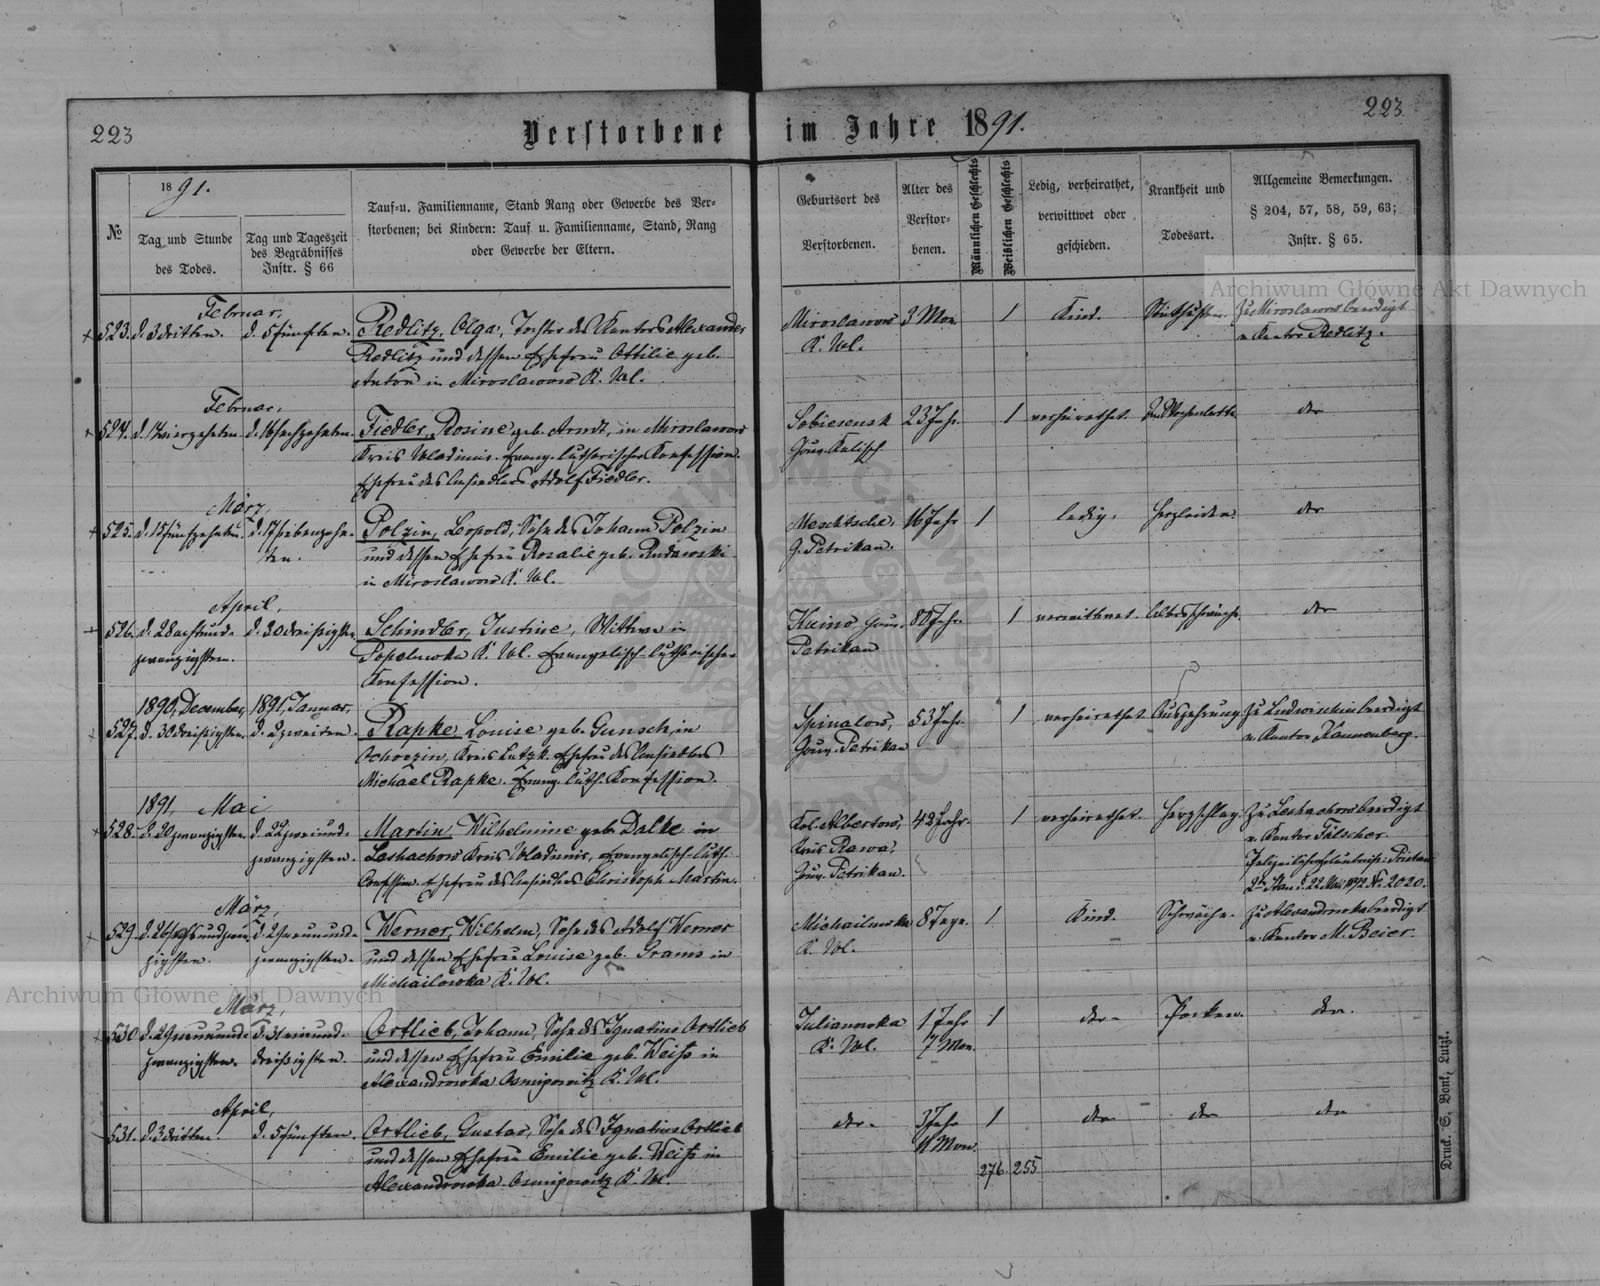 223
223
Verstorbene im Jahre 1891.
№
1891.
Tag und Stunde
des Todes.
Tag und Tageszeit
des Begräbnisses
Instr. § 66
Tauf-u. Familienname, Stand Rang oder Gewerbe des Ver-
storbenen; bei Kindern: Tauf u. Familienname, Stand, Rang
oder Gewerbe der Eltern.
Geburtsort des
Verstorbenen.
Alter des
Verstor-
benen.
Männlichen Geschlechts
Weiblichen Geschlechts
Ledig, verheirathet,
verwittwet oder
geschieden.
Krankheit und
Todesart.
Allgemeine Bemerkungen.
§ 204, 57, 58, 59, 63;
Instr. § 65.
Archiwum Główne Akt Dawnych
Februar,
523. d. 3 dritten. d. 5 fünften. Redlitz, Olga, Tochter des Kantors Alexander Miroslawow 3 Mon. 1 Kind. Zu Miroslawow beerdigt
Redlitz und dessen Ehefrau Ottilie geb. K. Wl. v. Kantor Redlitz.
Anton in Miroslawow K. Wl.
Februar,
524. d. 14 vierzehnten. d. 16 sechzehnten. Fiedler, Rosine geb. Arndt, in Miroslawow 23 Jahr. 1 verheirathet. der
Kreis Wladimir. Evang. lutherischer Konfession. Gouv. Kalisch.
Ehefrau des Ansiedlers Adolf Fiedler.
März,
525. d. 15 fünfzehnten. d. 17 siebenzehn- Polzin, Leopold, Sohn des Johann Polzin 16 Jahr 1 ledig. Herzleiden. der
ten. und dessen Ehefrau Rosalie geb. Rudawski G. Petrikau.
in Miroslawow K. Wl.
April,
526. d. 28 achtund- d. 30 dreißigsten Schindler, Justine, Wittwe in Gouv. 1 verwittwet. Altersschwäche. der
zwanzigsten. K. Wl. Evangelisch-lutherischer Petrikau
Konfession.
1890, December, 1891, Januar,
527. d. 30 dreißigsten. d. 2 zweiten. Rapke, Louise geb. Gunsch, in 53 Jahr. 1 verheirathet Auszehrung. beerdigt
Kreis Lutzk. Ehefrau des Ansiedlers Gouv. Petrikau v. Kantor
Michael Rapke. Evang. luth. Konfession.
1891, Mai
528. d. 20 zwanzigsten. d. 22 zweiund- Martin, Wilhelmine geb. Dalke in Kol. Albertow, 42 Jahr. 1 verheirathet. Herzschlag. Zu Leshachow beerdigt
zwanzigsten. Leshachow Kreis Wladimir, Evangelisch-luth. Kreis Rawa, v. Kantor Fälscher.
Confession. Ehefrau des Ansiedlers Christoph Martin. Gouv. Petrikau.
22 Mai 1892 Nr. 2020.
März,
529. d. 26 sechsundzwan- d. 29 neunund- Werner, Wilhelm, Sohn des Adolf Werner Michailowka 8 Tage. 1 Kind. Schwäche. Zu Alexandrowka beerdigt
zigsten. zwanzigsten. und dessen Ehefrau Louise geb. Grams in K. Wl. v. Kantor M. Beier.
Michailowka K. Wl.
Archiwum Główne Akt Dawnych
März,
530. d. 29 neunund- d. 31 einund- Ortlieb, Johann, Sohn des Ignatius Ortlieb Julianowka 1 Jahr 1 der Pocken. der.
zwanzigsten. dreißigsten. und dessen Ehefrau Emilie geb. Weiß in K. Wl. 7 Mon.
Alexandrowka K. Wl.
April,
531. d. 3 dritten. d. 5 fünften. Ortlieb, Gustav, Sohn des Ignatius Ortlieb der. 3 Jahr 1 der der der
und dessen Ehefrau Emilie geb. Weiß in 11 Mon.
Alexandrowka K. Wl. 276. 255
Druck. S. Bont, Lutzk.